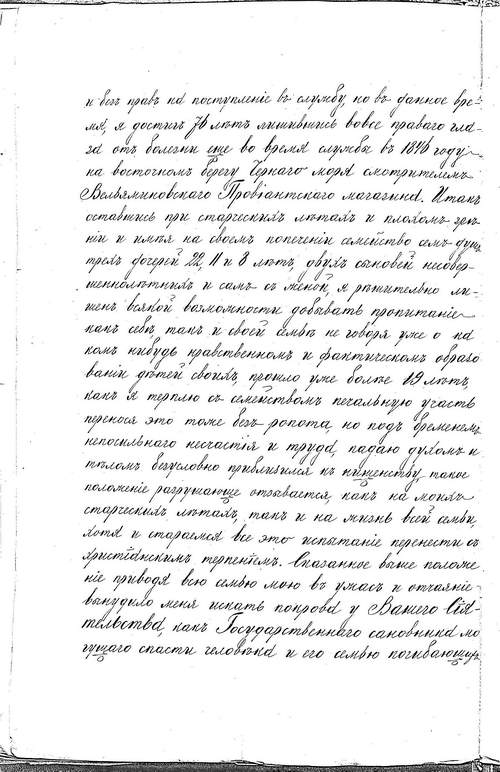 и безъ правъ на поступленіе въ службу, но въ данное вре-
мя, я достигъ 76 лѣтъ лишившись вовсе праваго гла-
за отъ болезни еще во время службы въ 1846 году
на восточномъ берегу Чернаго моря смотрителемъ
Вельяминовскаго Провіантскаго магазина. Итакъ
оставшись при старческихъ лѣтахъ и плохомъ зрѣ-
ніи и имѣя на своемъ попеченіи семейство семь душъ
трехъ дочерей 22, 11 и 8 лѣтъ, двухъ сыновей несовер-
шеннолѣтнихъ и самъ съ женой, я рѣшительно ли-
шенъ всякой возможности добывать пропитаніе
какъ себѣ, такъ и своей семьѣ не говоря уже о ка
комъ нибудь нравственномъ и фактическомъ образо
ваніи дѣтей своихъ, прошло уже более 19 лѣтъ,
какъ я терплю съ семействомъ печальную участь
перенося это тоже безъ ропота, но подъ бременемъ
непосильнаго несчастія и труда, падаю духомъ и
тѣломъ безусловно приблизился къ нищенству, такое
положеніе разрушающе отзывается, какъ на моихъ
старческихъ лѣтахъ, такъ и на жизнь всей семьи
хотя и стараемся все это испытаніе перенести съ
христіанскимъ терпеніемъ. Сказанное выше положе
ніе приводя всю семью мою въ ужасъ и отчаяніе
вынудило меня искать покрова у Вашего Сія-
тельства, какъ Государственнаго сановника мо
гущаго спасти человѣка и его семью погибающихъ